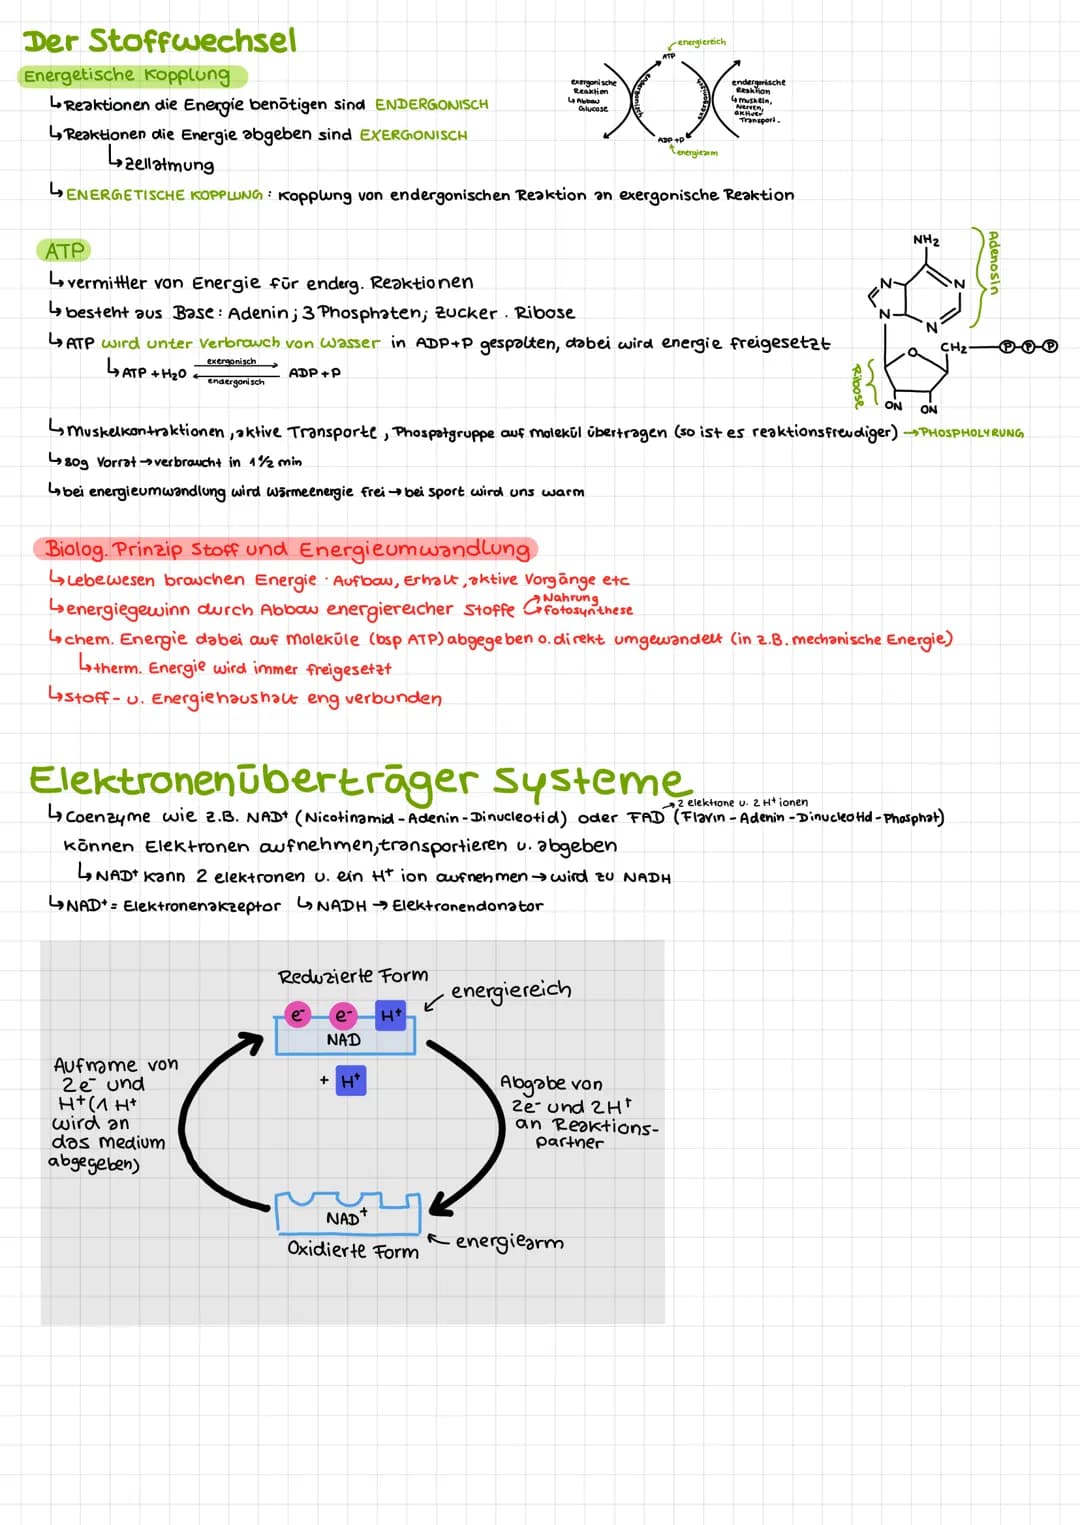 Der Stoffwechsel
Energetische Kopplung
↳ Reaktionen die Energie benötigen sind ENDERGONISCH
↳ Reaktionen die Energie abgeben sind EXERGONISCH
↳ zellatmung
↳ ENERGETISCHE KOPPLUNG: Kopplung von endergonischen Reaktion an exergonische Reaktion
energiereich
ATP
exergonische
Reaktion
↳ Abbau
Glucose
endergonische
Reaktion
↳ muskeln,
Nerven,
aktiver
Transport.
ADP+P
energiearm
ATP
↳ vermittler von Energie für enderg. Reaktionen
↳ besteht aus Base: Adenin; 3 Phosphaten; Zucker. Ribose
↳ ATP wird unter Verbrauch von Wasser in ADP+P gespalten, dabei wird energie freigesetzt
↳ ATP + H₂O exergonisch ADP+P
endergonisch
NH₂
Adenosin
N N
N N
O CH₂ P P P
Ribose
ON ON
↳ Muskelkontraktionen, aktive Transporte, Phospatgruppe auf molekül übertragen (so ist es reaktionsfreudiger) → PHOSPHOLYRUNG
↳ 80g Vorrat → verbraucht in 1½ min
↳ bei energieumwandlung wird Wärmeenergie frei → bei Sport wird uns warm
Biolog. Prinzip Stoff und Energieumwandlung
↳ Lebewesen brauchen Energie · Aufbau, Erhalt, aktive Vorgänge etc
↳ energiegewinn durch Abbau energiereicher Stoffe → Nahrung
→ fotosynthese
↳ chem. Energie dabei auf Moleküle (bsp ATP) abgegeben o. direkt umgewandelt (in z.B. mechanische Energie)
↳ therm. Energie wird immer freigesetzt
↳ stoff- u. Energiehaushalt eng verbunden
Elektronenüberträger Systeme
→ 2 elektrone u. 2 H⁺ ionen
↳ Coenzyme wie z.B. NAD⁺ (Nicotinamid-Adenin-Dinucleotid) oder FAD (Flavin-Adenin-Dinucleotid-Phosphat)
können Elektronen aufnehmen, transportieren u. abgeben
↳ NAD⁺ kann 2 elektronen u. ein H⁺ ion aufnehmen → wird zu NADH
↳ NAD⁺ = Elektronenakzeptor ↳ NADH → Elektronendonator
Reduzierte Form
energiereich
e⁻ e⁻ H⁺
NAD
+ H⁺
Aufname von
2e⁻ und
H⁺(1 H⁺
wird an
das medium
abgegeben)
Abgabe von
2e⁻ und 2H⁺
an Reaktions-
partner
NAD⁺
Oxidierte Form
energiearm